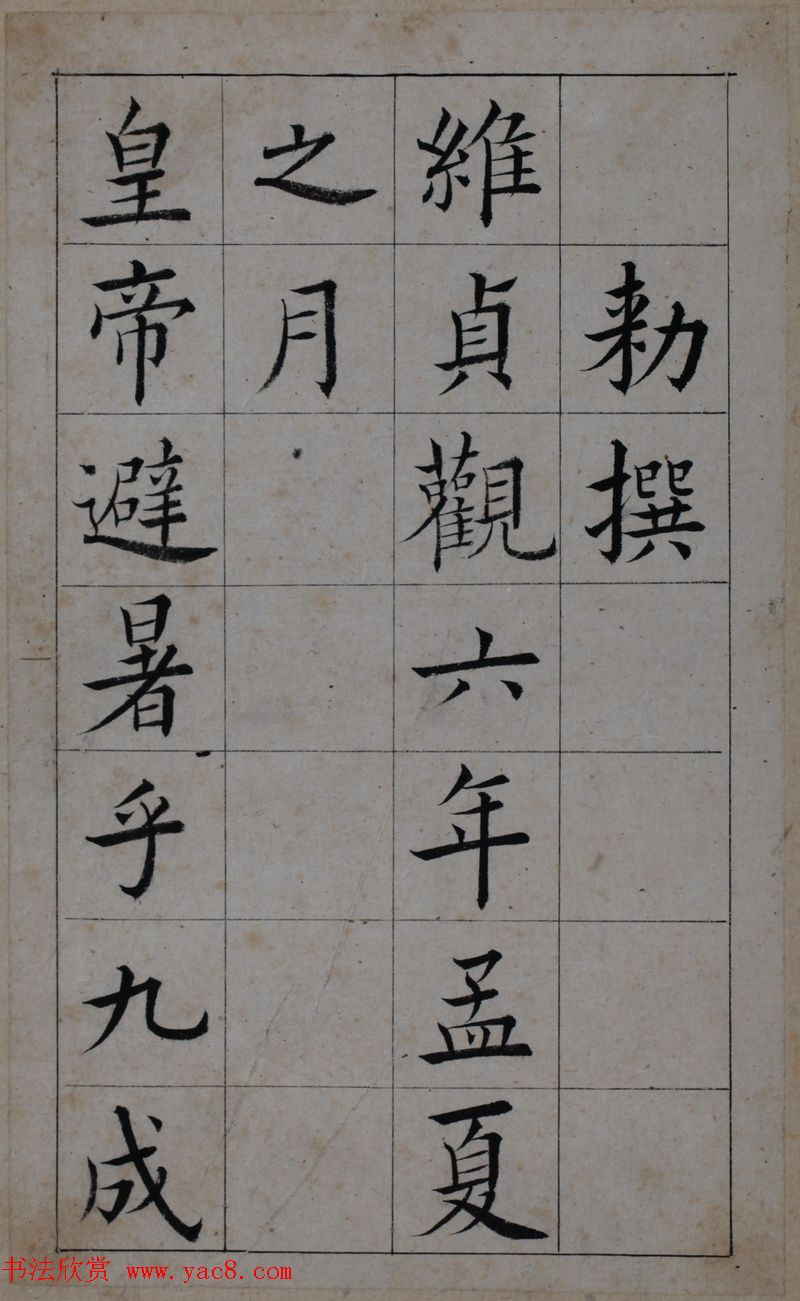 勑撰
維貞觀六年孟夏
之月
皇帝避暑乎九成
书法欣赏 www.yac8.com